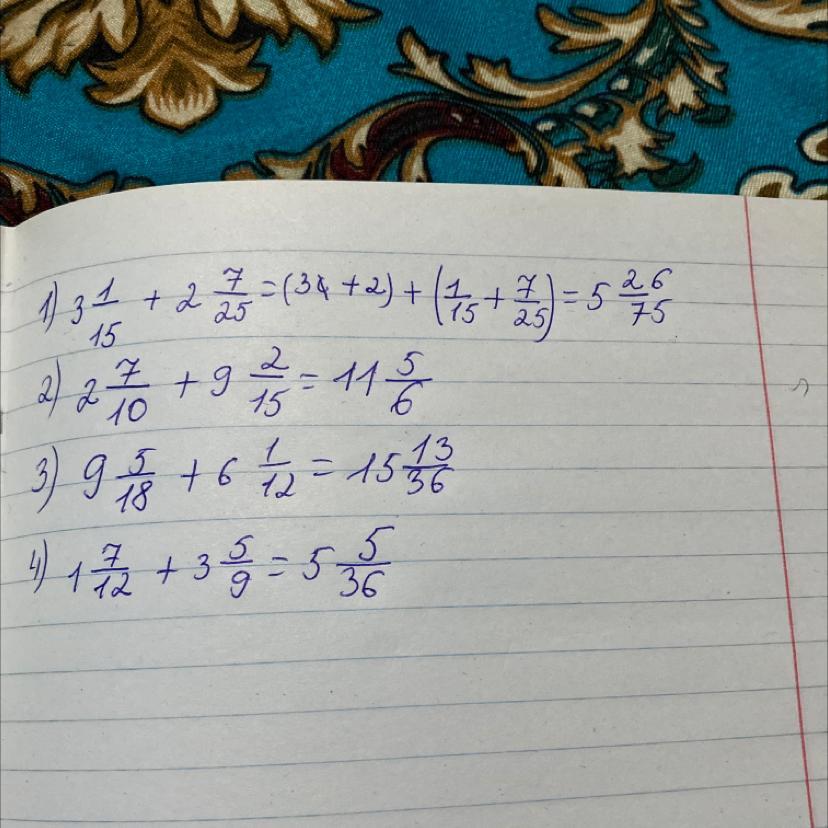 1) 3 1/15 + 2 7/25 = (3 + 2) + (1/15 + 7/25) = 5 26/75
2) 2 7/10 + 9 2/15 = 11 5/6
3) 9 5/18 + 6 1/12 = 15 13/36
4) 1 7/12 + 3 5/9 = 5 5/36